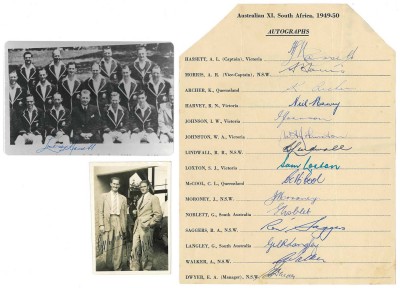 Australian XI. South Africa, 1949-50
AUTOGRAPHS
HASSETT, A. L. (Captain), Victoria
MORRIS, A. R. (Vice-Captain), N.S.W.
ARCHER, K., Queensland
HARVEY, R. N., Victoria Neil Harvey
JOHNSON, I. W., Victoria
JOHNSTON, W. A., Victoria
LINDWALL, R. R., N.S.W.
LOXTON, S. J., Victoria Sam Loxton
McCOOL, C. L., Queensland
MORONEY, J., N.S.W. J Moroney
NOBLETT, G., South Australia G Noblet
SAGGERS, R. A., N.S.W. Ron Saggers
LANGLEY, G., South Australia Gil R Langley
WALKER, A., N.S.W. A Walker
DWYER, E. A. (Manager), N.S.W.